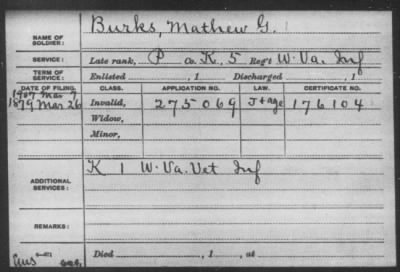 NAME OF SOLDIER: Burks, Mathew G.
SERVICE: Late rank, P Co. K, 5 Reg't W. Va. Inf
TERM OF SERVICE: Enlisted , 1 Discharged , 1
DATE OF FILING. CLASS. APPLICATION NO. LAW. CERTIFICATE NO.
1907 Mar 7
1879 Mar 26 Invalid, 275069 J+age 176104
Widow,
Minor,
ADDITIONAL SERVICES: K 1 W. Va. Vet Inf
REMARKS:
Died , 1 , at